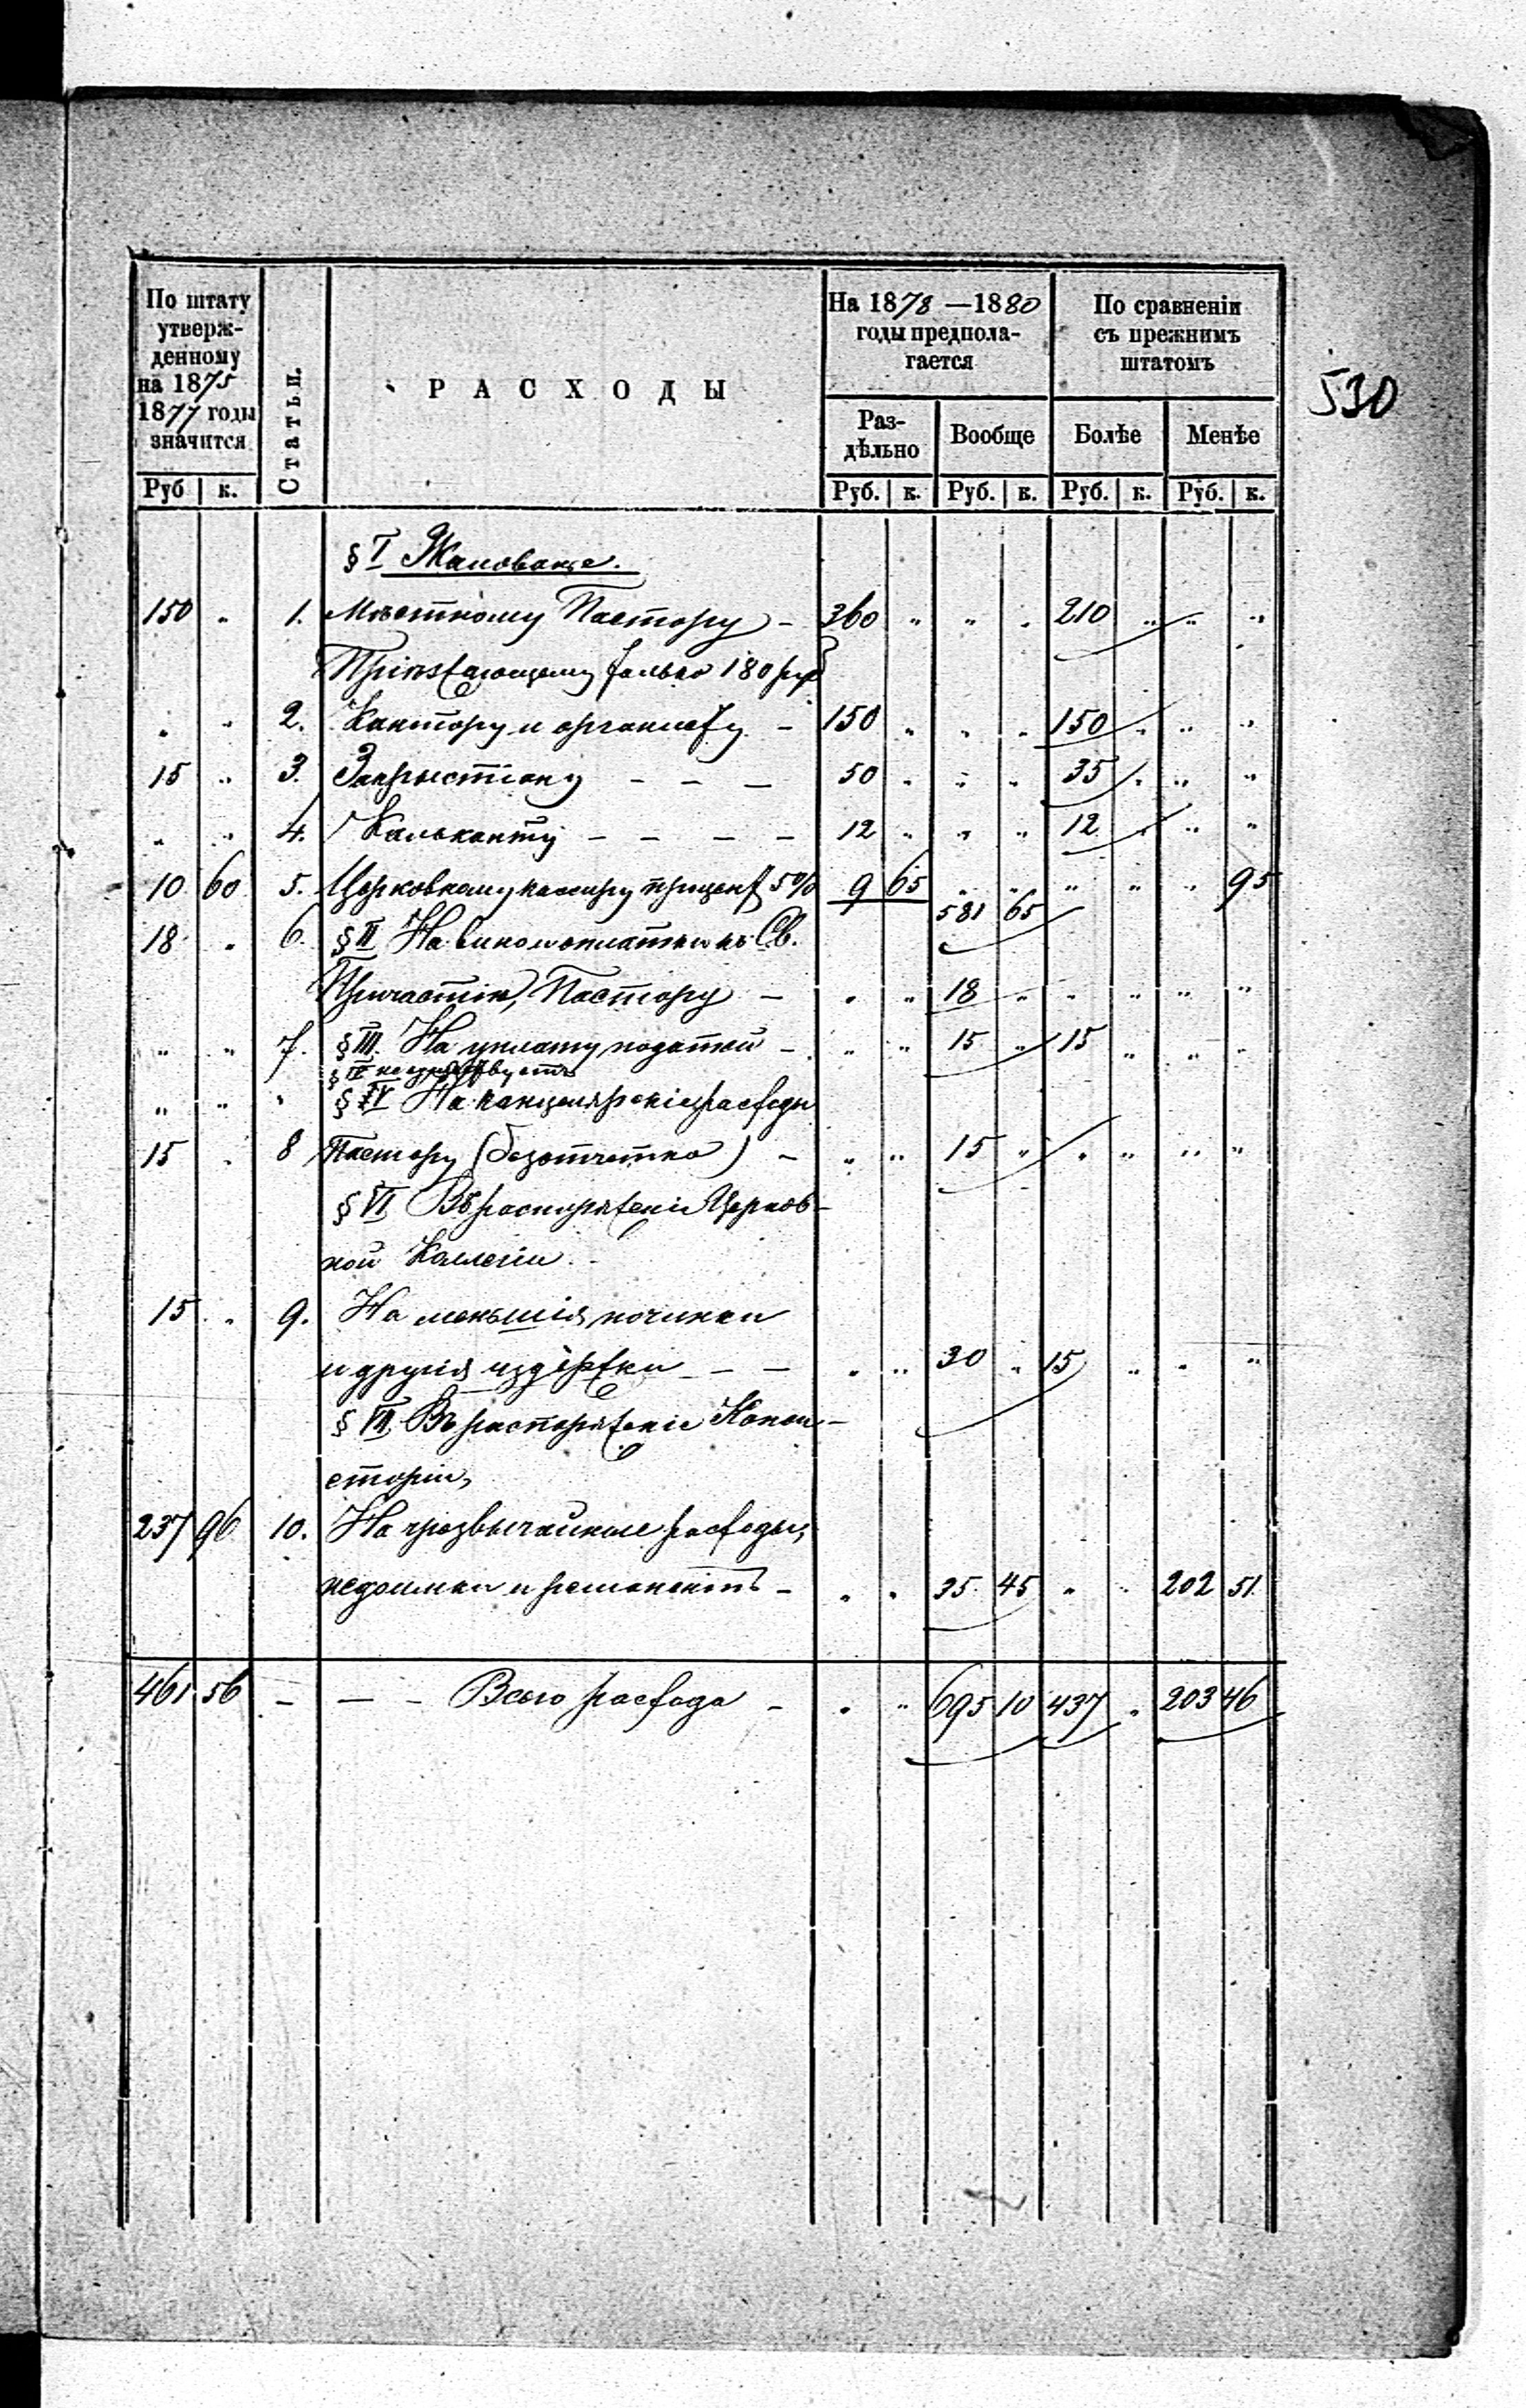 530
По штату утвержденному на 1875 1877 годы значится
Статьи.
РАСХОДЫ
На 1878—1880 годы предполагается
По сравненіи съ прежнимъ штатомъ
Раздѣльно Вообще Болѣе Менѣе
Руб к. Руб. к. Руб. к. Руб. к. Руб. к.
§ I Жалованье.
150 „ 1. Мѣстному Пастору — 360 „ „ „ 210 „ „ „
Пріѣзжающему только 180 руб
„ „ 2. Кантору и органисту — 150 „ „ „ 150 „ „ „
15 „ 3. Закрыстіану — — — 50 „ „ „ 35 „ „ „
„ „ 4. Кальканту — — — — 12 „ „ „ 12 „ „ „
10 60 5. Церковному кассиру процент 5% 9 65 „ „ „ „ „ 95
581 65
18 „ 6. § II На вино и оплатки къ Св.
Причастію, Пастору — „ „ 18 „ „ „ „ „
„ „ 7. § III. На уплату податей — „ „ 15 „ 15 „ „ „
§ IV не существуетъ
„ „ „ § V На канцелярскіе расходы
15 „ 8 Пастору (безотчетно) — „ „ 15 „ „ „ „ „
§ VI Въ распоряженіи Церков-
ной Коллегіи.
15 „ 9. На меньшія починки
и другія издержки — — „ „ 30 „ 15 „ „ „
§ VII Въ распоряженіе Конси-
сторіи,
237 96 10. На чрезвычайные расходы,
недоимки и ремонентъ — „ „ 35 45 „ „ 202 51
461 56 — — — Всего расхода — „ „ 695 10 437 „ 203 46